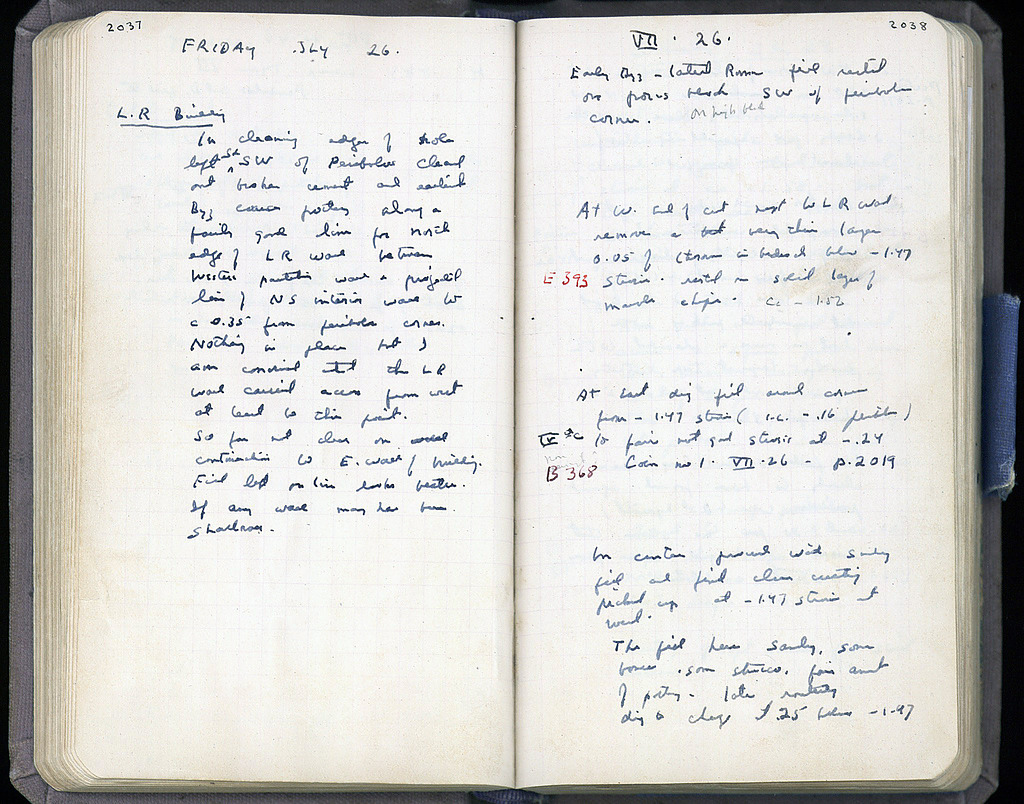 2037
FRIDAY JLY 26.
L.R Building
In cleaning edges of hole
left SW of Peribolos cleared
out broken cement and earliest
Byz coarse pottery along a
fairly good line for north
edge of LR wall between
Western partition wall & projected
line of NS interior wall W
c 0.35 from peribolos corner.
Nothing in place but I
am convinced that the LR
wall carried across from west
at least to this point.
So far not clear on
continuation to E. wall of building.
Fill left on line looks better.
If any wall may have been
shallower.
2038
VII . 26.
Early Byz – latest Roman fill rested
on porous block SW of peribolos
corner. on high block
At W. end of cut next W LR wall
remove a very thin layer
0.05 of in bedrock below -1.47
E 393 Strosis. rested on solid layer of
marble chips. Ca – 1.52
At East dig fill around corner
from – 1.47 strosis ( i.e. – .16 peribolos )
IV to fairly not good strosis at – .24
B 368 Coin no 1. VII . 26 – p. 2019
In center proceed with sandy
fill and find clear cutting
picked up at – 1.47 strosis at
west.
The fill here sandy, some
bones . some stucco. fair amt
of pottery. later
dig to change at .25 below – 1.47